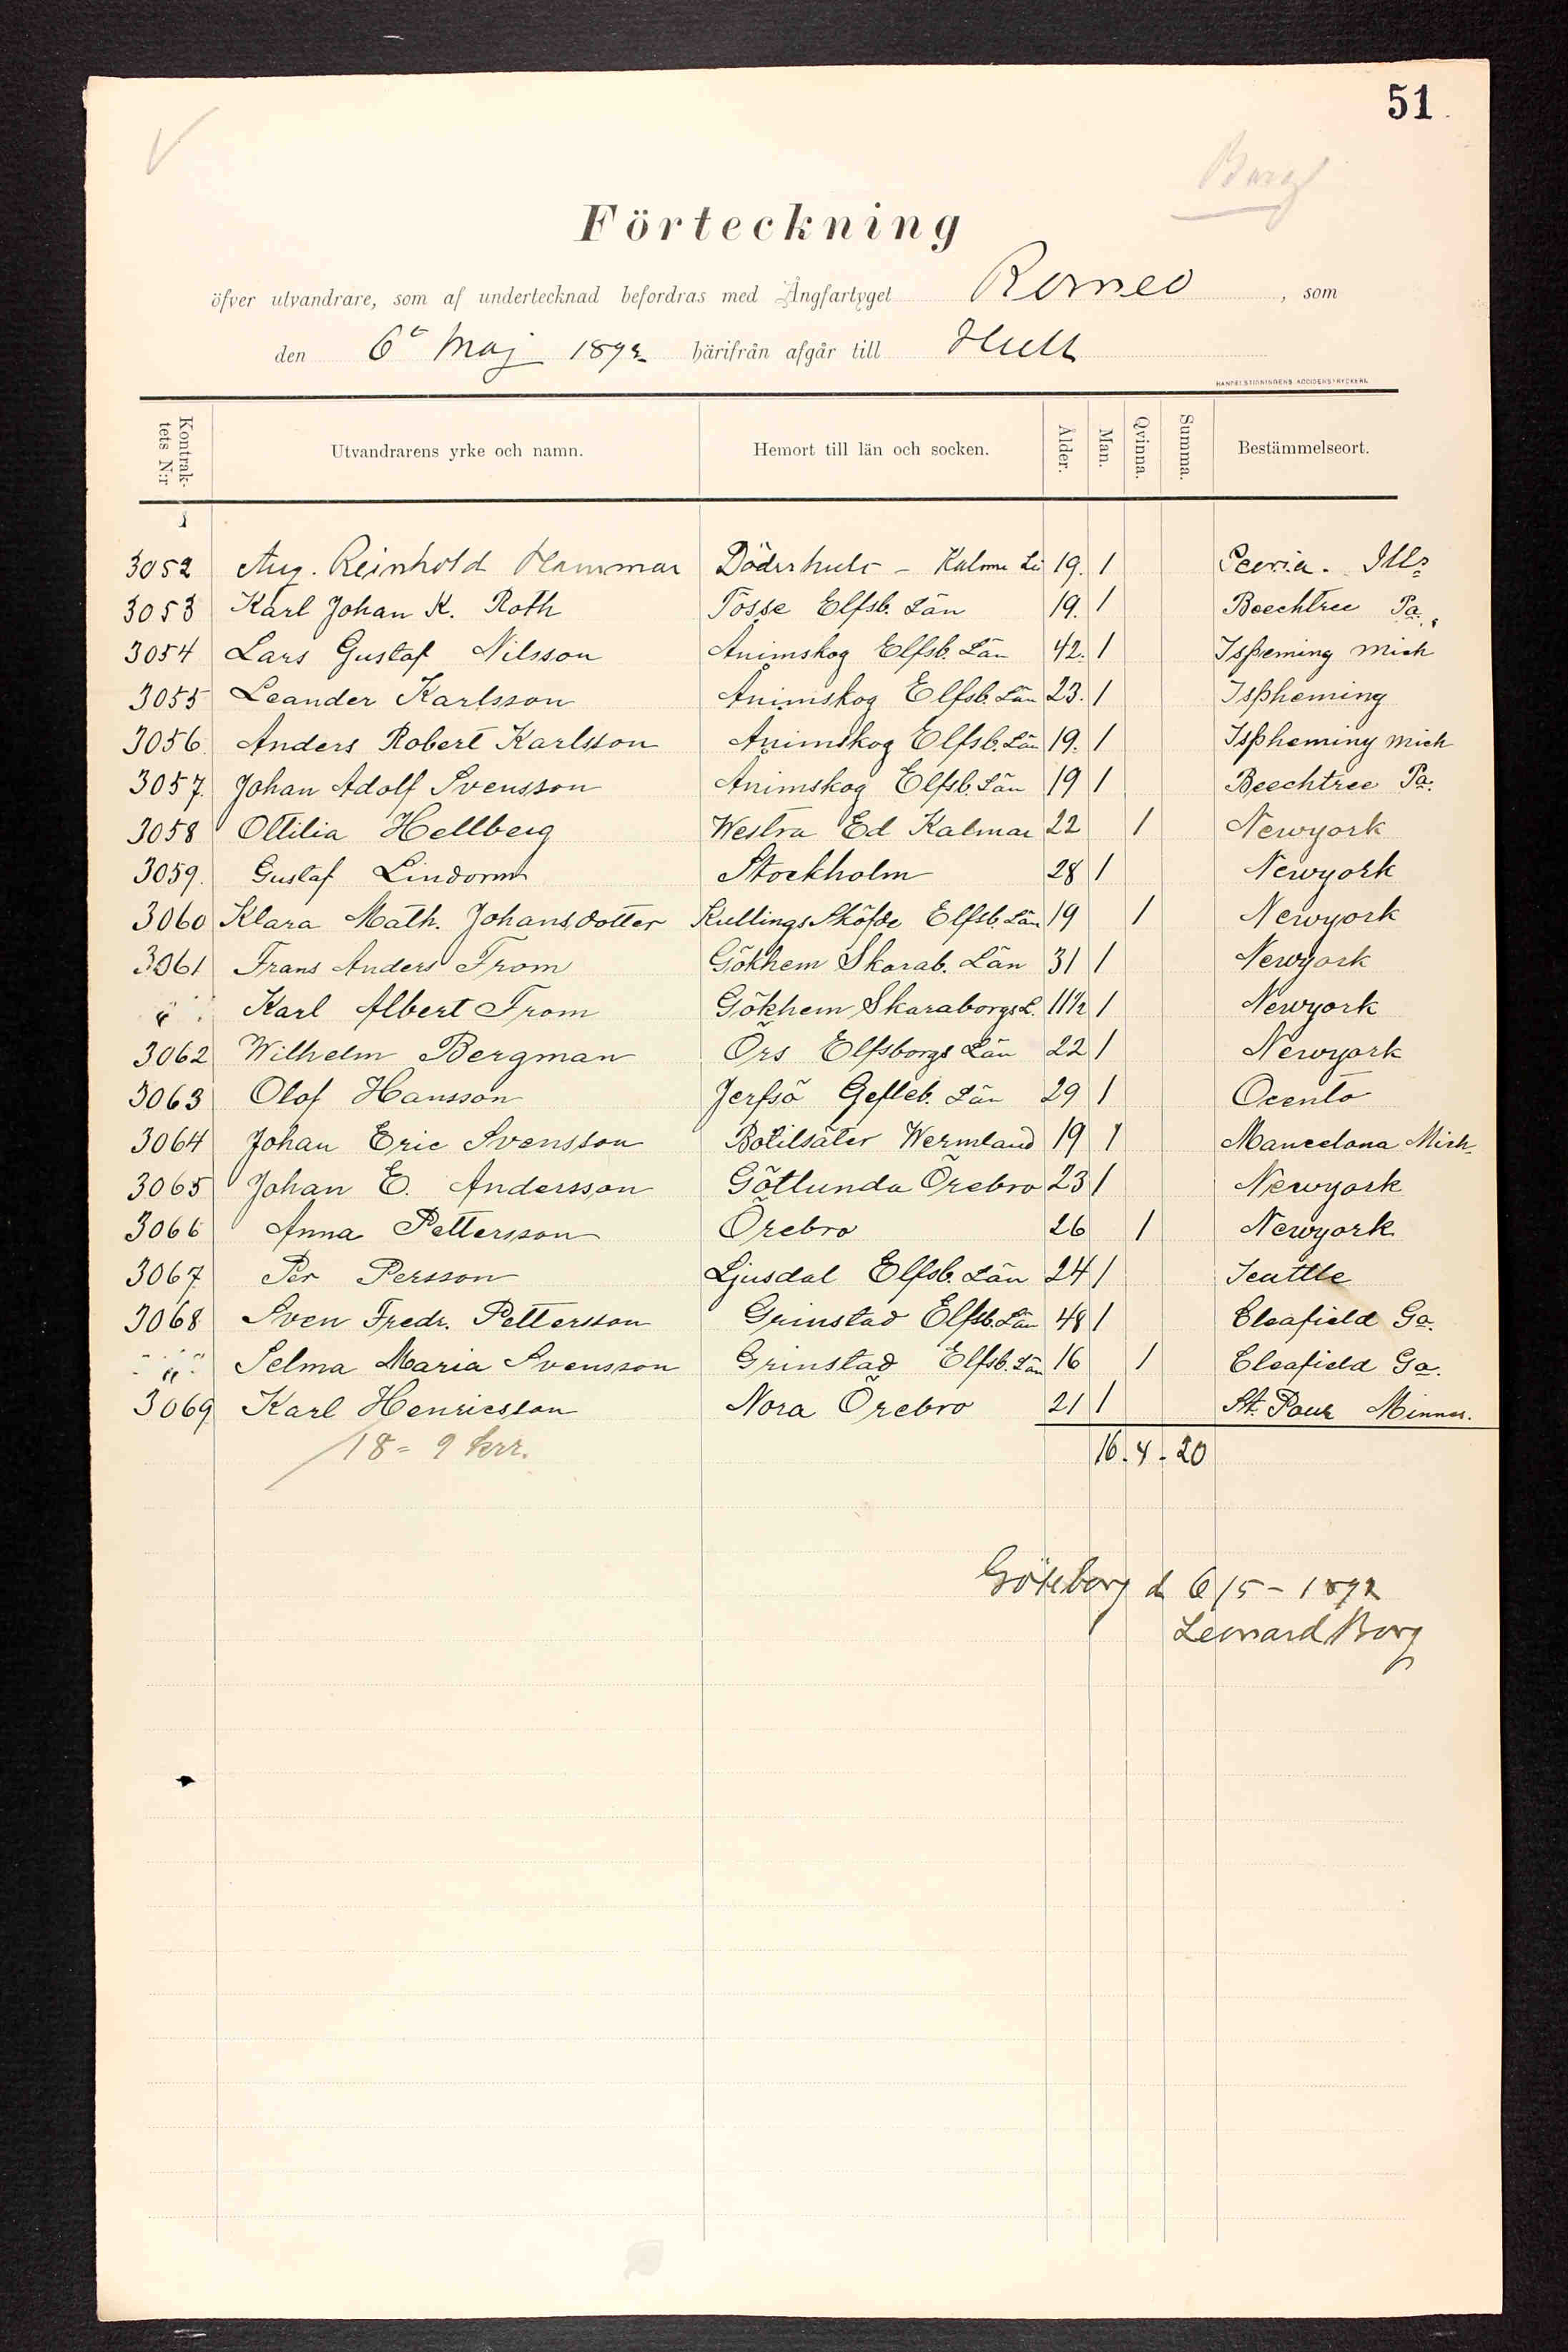 51
Borg
Förteckning
öfver utvandrare, som af undertecknad befordras med Ångfartyget Romeo, som
den 6t Maj 1892 härifrån afgår till Hull
HANDELSTIDNINGENS ACCIDENSTRYCKERI.
Kontraktets N:r Utvandrarens yrke och namn. Hemort till län och socken. Ålder. Man. Qvinna. Summa. Bestämmelseort.
3052 Aug. Reinhold Hammar Döderhult - Kalmr Lä 19. 1 Peoria. Ills
3053 Karl Johan K. Roth Tösse Elfsb. Län 19. 1 Beechtree Pa.
3054 Lars Gustaf Nilsson Ånimskog Elfsb. Län 42. 1 Ispeming Mich
3055 Leander Karlsson Ånimskog Elfsb. Län 23. 1 Ispheming
3056 Anders Robert Karlsson Ånimskog Elfsb. Län 19. 1 Ispheming Mich
3057. Johan Adolf Svensson Ånimskog Elfsb. Län 19 1 Beechtree Pa.
3058 Ottilia Hellberg Westra Ed Kalmar 22 1 Newyork
3059. Gustaf Lindorm Stockholm 28 1 Newyork
3060 Klara Math. Johansdotter Kullings Sköfde Elfsb. Län 19 1 Newyork
3061 Frans Anders From Gökhem Skarab. Län 31 1 Newyork
" Karl Albert From Gökhem Skaraborgs L. 11½ 1 Newyork
3062 Wilhelm Bergman Örs Elfsborgs Län 22 1 Newyork
3063 Olof Hansson Jerfsö Gefleb. Län 29 1 Oconto
3064 Johan Eric Svensson Botilsäter Wermland 19 1 Mancelona Mich.
3065 Johan E. Andersson Götlunda Örebro 23 1 Newyork
3066 Anna Pettersson Örebro 26 1 Newyork
3067 Per Persson Ljusdal Elfsb. Län 24 1 Seattle
3068 Sven Fredr. Pettersson Grinstad Elfsb. Län 48 1 Cleafield Ga.
" Selma Maria Svensson Grinstad Elfsb. Län 16 1 Cleafield Ga.
3069 Karl Henricsson Nora Örebro 21 1 St. Paul Minnes.
18 = 9 krr. 16. 4. 20
Göteborg d 6/5 - 1892
Leonard Borg